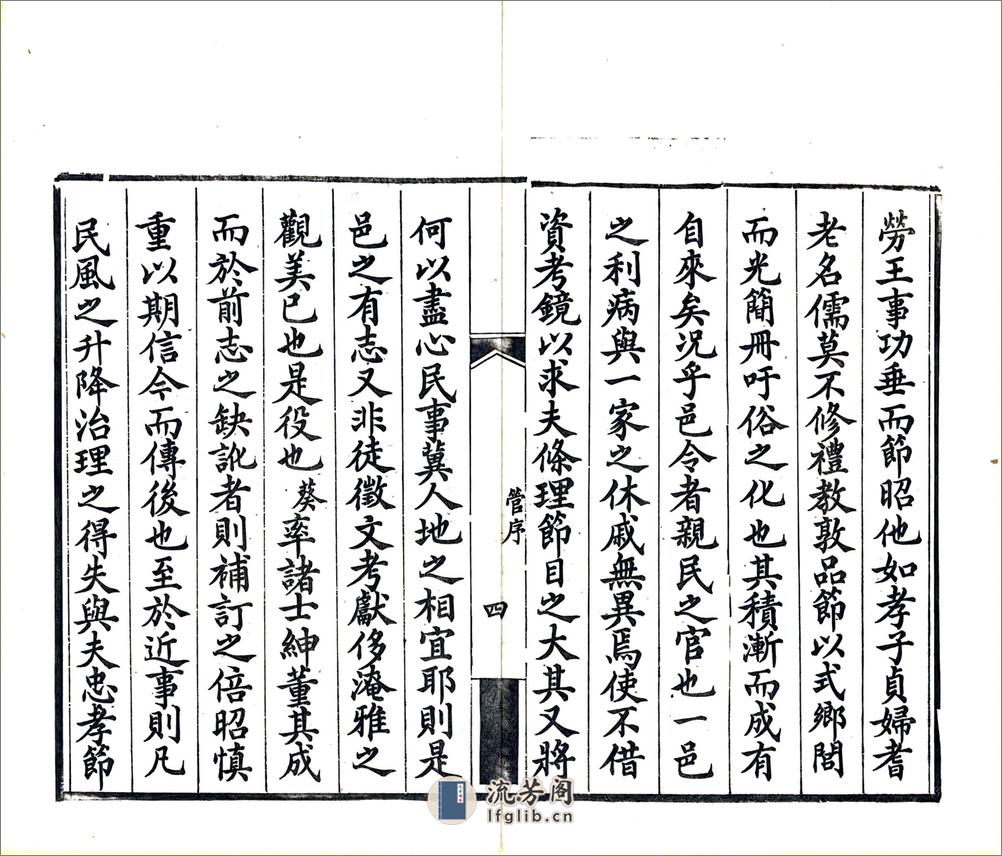 勞王事功垂而節昭他如孝子貞婦耆
老名儒莫不修禮教敦品節以式鄉閭
而光簡冊吁俗之化也其積漸而成有
自來矣况乎邑令者親民之官也一邑
之利病與一家之休戚無異焉使不借
資考鏡以求夫條理節目之大其又將
管序
四
何以盡心民事冀人地之相宜耶則是
邑之有志又非徒徵文考獻侈淹雅之
觀美已也是役也葵率諸士紳董其成
而於前志之缺訛者則補訂之倍昭慎
重以期信今而傳後也至於近事則凡
民風之升降治理之得失與夫忠孝節
流芳阁
lfglib.cn